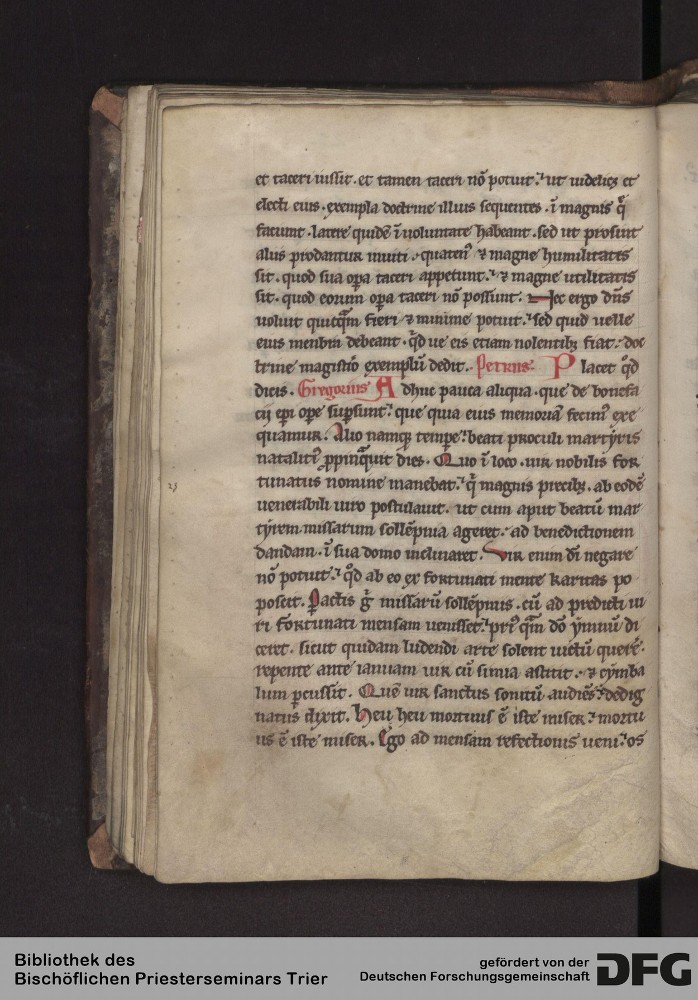 et taceri iussit . et tamen taceri nō potuit . ut uidelicꝫ et
electi eius . exempla doctrine illius sequentes . ī magnis q̄
faciunt . latere quidē ī uoluntate habeant . sed ut prosint
aliis prodantur inuiti . quatenꝰ ⁊ magne humilitatis
sit . quod sua oꝑa taceri appetunt . ⁊ magne utilitatis
sit . quod eorum oꝑa taceri nō possunt . Nec ergo dn̄s
uoluit quicq̄m fieri ⁊ minime potuit . sed quid uelle
eius menbra debeant . q̄d ue eis etiam nolentibꝫ fiat . doc
trine magisterio exemplū dedit . Petrus . Placet q̄d
dicis . Gregorius Adhuc pauca aliqua . que de bonefa
cij ep̄i oꝑe suꝑsunt . que quia eius memoriā fecimꝰ exe
quamur . Alio namqꝫ temꝑe . beati proculi martyris
natalitiꝰ ꝓpinq̄uit dies . Quo ī loco . uir nobilis for
tunatus nomine manebat . q̄ magnis precibꝫ . ab eodē
23
uenerabili uiro postulauit . ut cum aput beatū mar
tyrem missarum sollēpnia ageret . ad benedictionem
dandam . ī sua domo inclinaret . Vir enim dī negare
nō potuit . q̄d ab eo ex fortunati mente karitas po
poscit . Pactis g̃ missarū sollēpniis . cū ad predicti ui
ri fortunati mensam uenisset . priꝰ q̄m dō ymnū di
ceret . sicut quidam ludendi arte solent uictū querē .
repente ante ianuam uir cū simia astitit . ⁊ cymba
lum ꝑcussit . Quē uir sanctus sonitū audiēs . dedig
natus dixit . Heu heu mortuus ē iste miser . mortu
us ē iste miser . Ego ad mensam refectionis ueni . os
Bibliothek des
Bischöflichen Priesterseminars Trier
gefördert von der
Deutschen Forschungsgemeinschaft
DFG